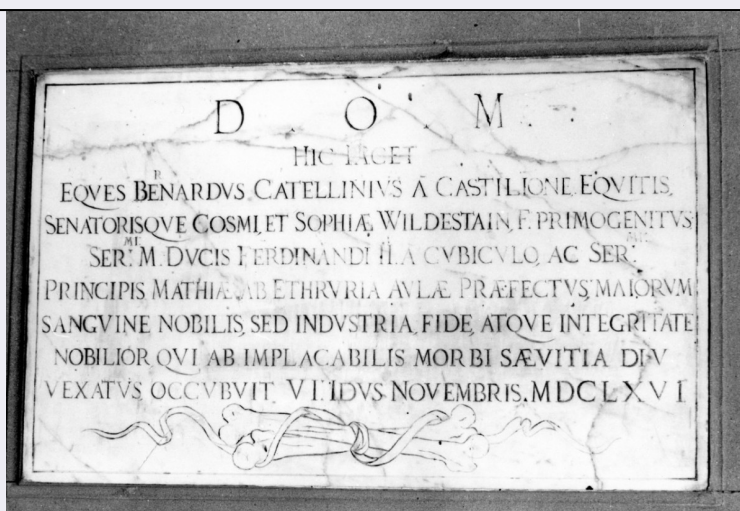 D O M
HIC IACET
EQVES BERNARDVS CATELLINIVS A CASTILIONE EQVITIS
SENATORISQVE COSMI, ET SOPHIÆ WILDESTAIN F. PRIMOGENITVS
SER.MI M. DVCIS FERDINANDI II. A CVBICVLO AC SER.MI
PRINCIPIS MATHIÆ AB ETHRVRIA AVLÆ PRÆFECTVS MAIORVM
SANGVINE NOBILIS, SED INDVSTRIA, FIDE, ATQVE INTEGRITATE
NOBILIOR QVI AB IMPLACABILIS MORBI SÆVITIA DIV
VEXATVS OCCVBVIT VI. IDVS NOVEMBRIS. MDCLXVI